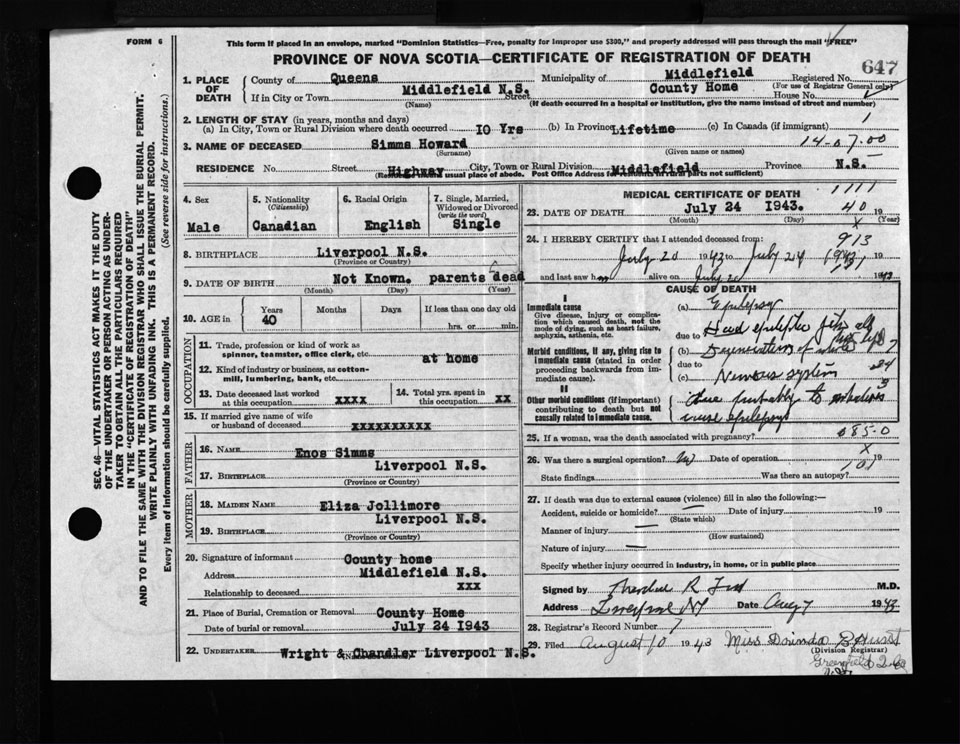 FORM 6
This form if placed in an envelope, marked "Dominion Statistics—Free, penalty for improper use $300," and properly addressed will pass through the mail "FREE"
PROVINCE OF NOVA SCOTIA—CERTIFICATE OF REGISTRATION OF DEATH
647
1. PLACE OF DEATH
County of Queens Municipality of Middlefield Registered No.
(For use of Registrar General only)
If in City or Town Middlefield N.S. Street County Home House No.
(Name) (If death occurred in a hospital or institution, give the name instead of street and number)
2. LENGTH OF STAY (in years, months and days)
(a) In City, Town or Rural Division where death occurred 10 Yrs (b) In Province Lifetime (c) In Canada (if immigrant) 1
14-07.00
3. NAME OF DECEASED Simms Howard
(Surname) (Given name or names)
RESIDENCE No. Street Highway City, Town or Rural Division Middlefield Province N.S.
usual place of abode. Post Office Address for not sufficient)
4. Sex Male
5. Nationality (Citizenship) Canadian
6. Racial Origin English
7. Single, Married, Widowed or Divorced (write the word) Single
8. BIRTHPLACE Liverpool N.S.
(Province or Country)
9. DATE OF BIRTH Not Known. parents dead
(Month) (Day) (Year)
10. AGE in Years 40 Months Days If less than one day old hrs. or min.
OCCUPATION
11. Trade, profession or kind of work as spinner, teamster, office clerk, etc. at home
12. Kind of industry or business, as cotton-mill, lumbering, bank, etc.
13. Date deceased last worked at this occupation xxxx
14. Total yrs. spent in this occupation xx
15. If married give name of wife or husband of deceased xxxxxxxxxx
FATHER
16. NAME Enos Simms
17. BIRTHPLACE Liverpool N.S.
(Province or Country)
MOTHER
18. MAIDEN NAME Eliza Jollimore
19. BIRTHPLACE Liverpool N.S.
(Province or Country)
20. Signature of informant County home
Address Middlefield N.S.
Relationship to deceased xxx
21. Place of Burial, Cremation or Removal County Home
Date of burial or removal July 24 1943
22. UNDERTAKER Wright & Chandler Liverpool N.S.
MEDICAL CERTIFICATE OF DEATH
1111
23. DATE OF DEATH July 24 1943. 40 19
(Month) (Day) (Year)
x
24. I HEREBY CERTIFY that I attended deceased from: 913
July 20 1943 to July 24 1943
and last saw h m alive on July 1943
CAUSE OF DEATH
I
Immediate cause
Give disease, injury or complication which caused death, not the mode of dying, such as heart failure, asphyxia, asthenia, etc.
(a) Epilepsy
due to Had epileptic fits all his life
Morbid conditions, if any, giving rise to immediate cause (stated in order proceeding backwards from immediate cause).
(b) Degeneration of whole
due to
(c) Nervous system
II
Other morbid conditions (if important) contributing to death but not causally related to immediate cause.
due probably to
epilepsy
25. If a woman, was the death associated with pregnancy? 085-0
x
26. Was there a surgical operation? No Date of operation 19
State findings Was there an autopsy?
27. If death was due to external causes (violence) fill in also the following:—
Accident, suicide or homicide? — Date of injury 19
(State which)
Manner of injury —
(How sustained)
Nature of injury —
Specify whether injury occurred in industry, in home, or in public place
Signed by Theodore R Ford M.D.
Address Liverpool NS Date Aug 7 1943
28. Registrar's Record Number 7
29. Filed August 10 1943 Miss Dorinda
(Division Registrar)
Greenfield
SEC. 46—VITAL STATISTICS ACT MAKES IT THE DUTY
OF THE UNDERTAKER OR PERSON ACTING AS UNDERTAKER TO OBTAIN ALL THE PARTICULARS REQUIRED
IN THE "CERTIFICATE OF REGISTRATION OF DEATH"
AND TO FILE THE SAME WITH THE DIVISION REGISTRAR WHO SHALL ISSUE THE BURIAL PERMIT.
WRITE PLAINLY WITH UNFADING INK. THIS IS A PERMANENT RECORD.
Every item of information should be carefully supplied. (See reverse side for instructions.)